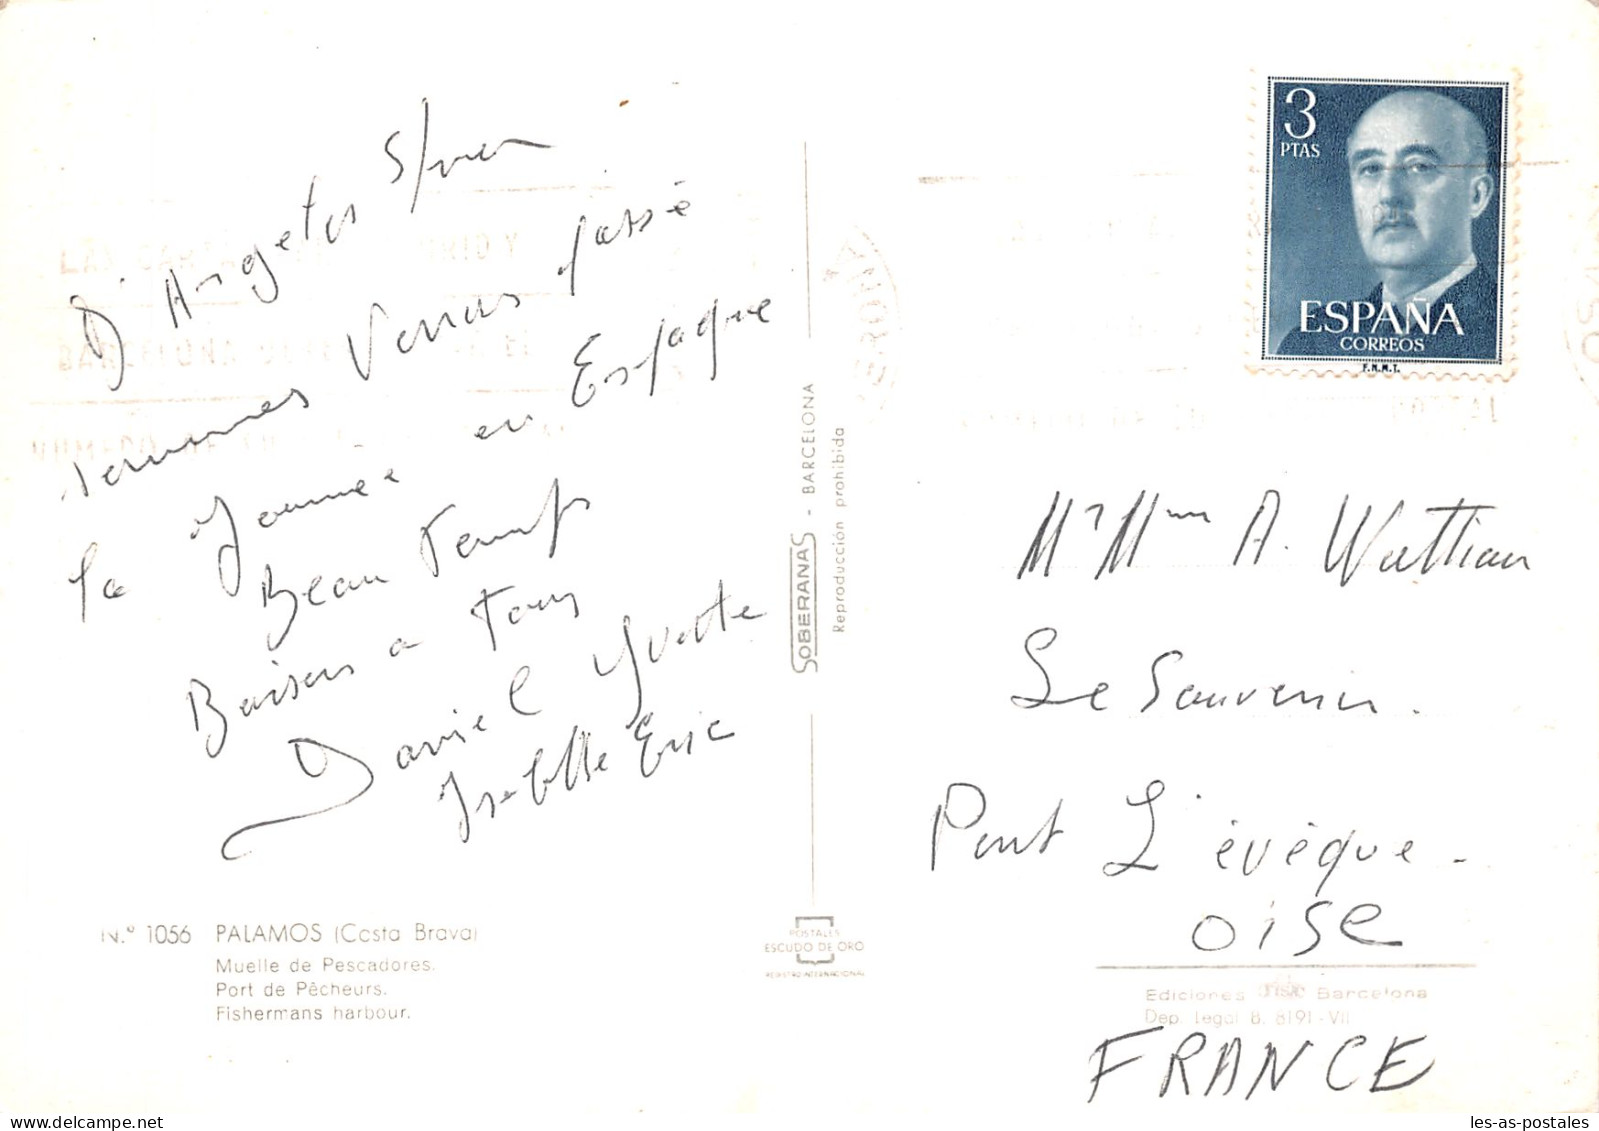 D'Argeles S/mer
sommes venus passé
la Journee en Espagne
Beau Temps
Baisers a Tous
Daniel Yvette
Isabelle Eric
N.º 1056 PALAMOS (Costa Brava)
Muelle de Pescadores.
Port de Pêcheurs.
Fishermans harbour.
SOBERANAS - BARCELONA
Reproducción prohibida
POSTALES
ESCUDO DE ORO
REGISTRO INTERNACIONAL
3
PTAS
ESPAÑA
CORREOS
F.N.M.T.
Mr Mme A. Wattiau
Le Souvenir.
Pont L'évêque -
OISE
Ediciones Fisa Barcelona
Dep. Legal B. 8191-VII
FRANCE
les-as-postales